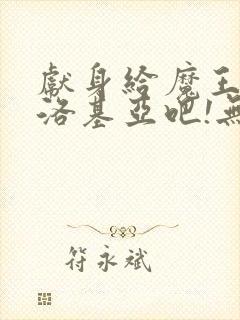 獻身給魔王
洛基亞吧!無
符永斌